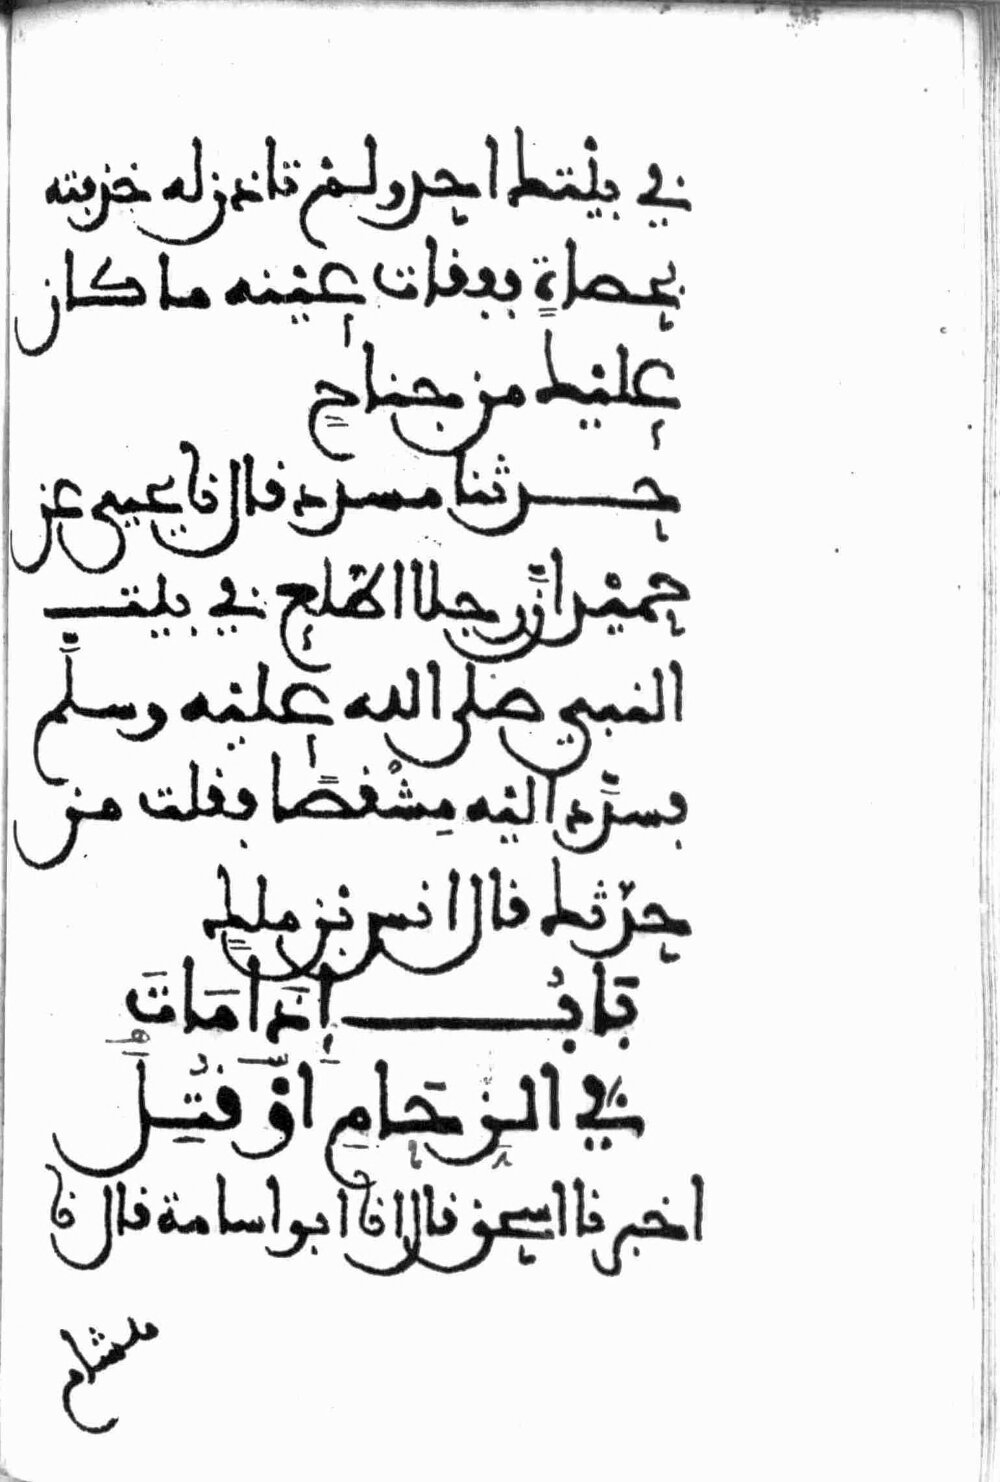 في بيتك احد ولم تاذن له خذفته
بحصاة ففقات عينه ما كان
عليك من جناح
حدثنا مسدد قال نا يحيى عن
حميد ان رجلا اطلع في بيت
النبي صلى الله عليه وسلم
فسدد اليه مشقصا فقلت من
حدثك قال انس بن ملك
باب اذا مات
في الزحام او قتل
اخبرنا اسحق قال انا ابو اسامة قال نا
هشام